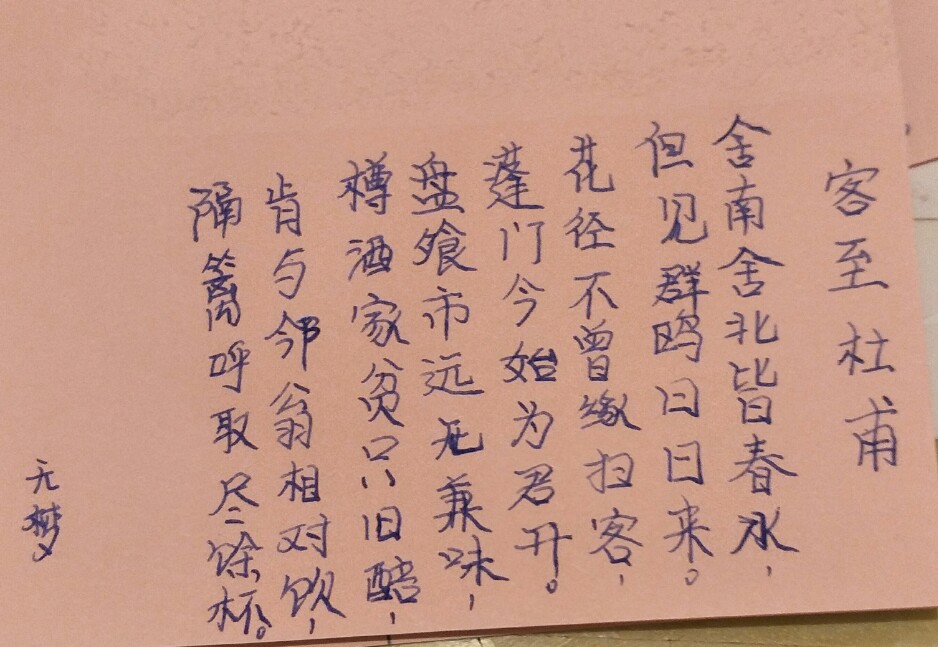 客至 杜甫
舍南舍北皆春水，
但见群鸥日日来。
花径不曾缘扫客，
蓬门今始为君开。
盘飧市远无兼味，
樽酒家贫只旧醅，
肯与邻翁相对饮，
隔篱呼取尽馀杯。
无梦